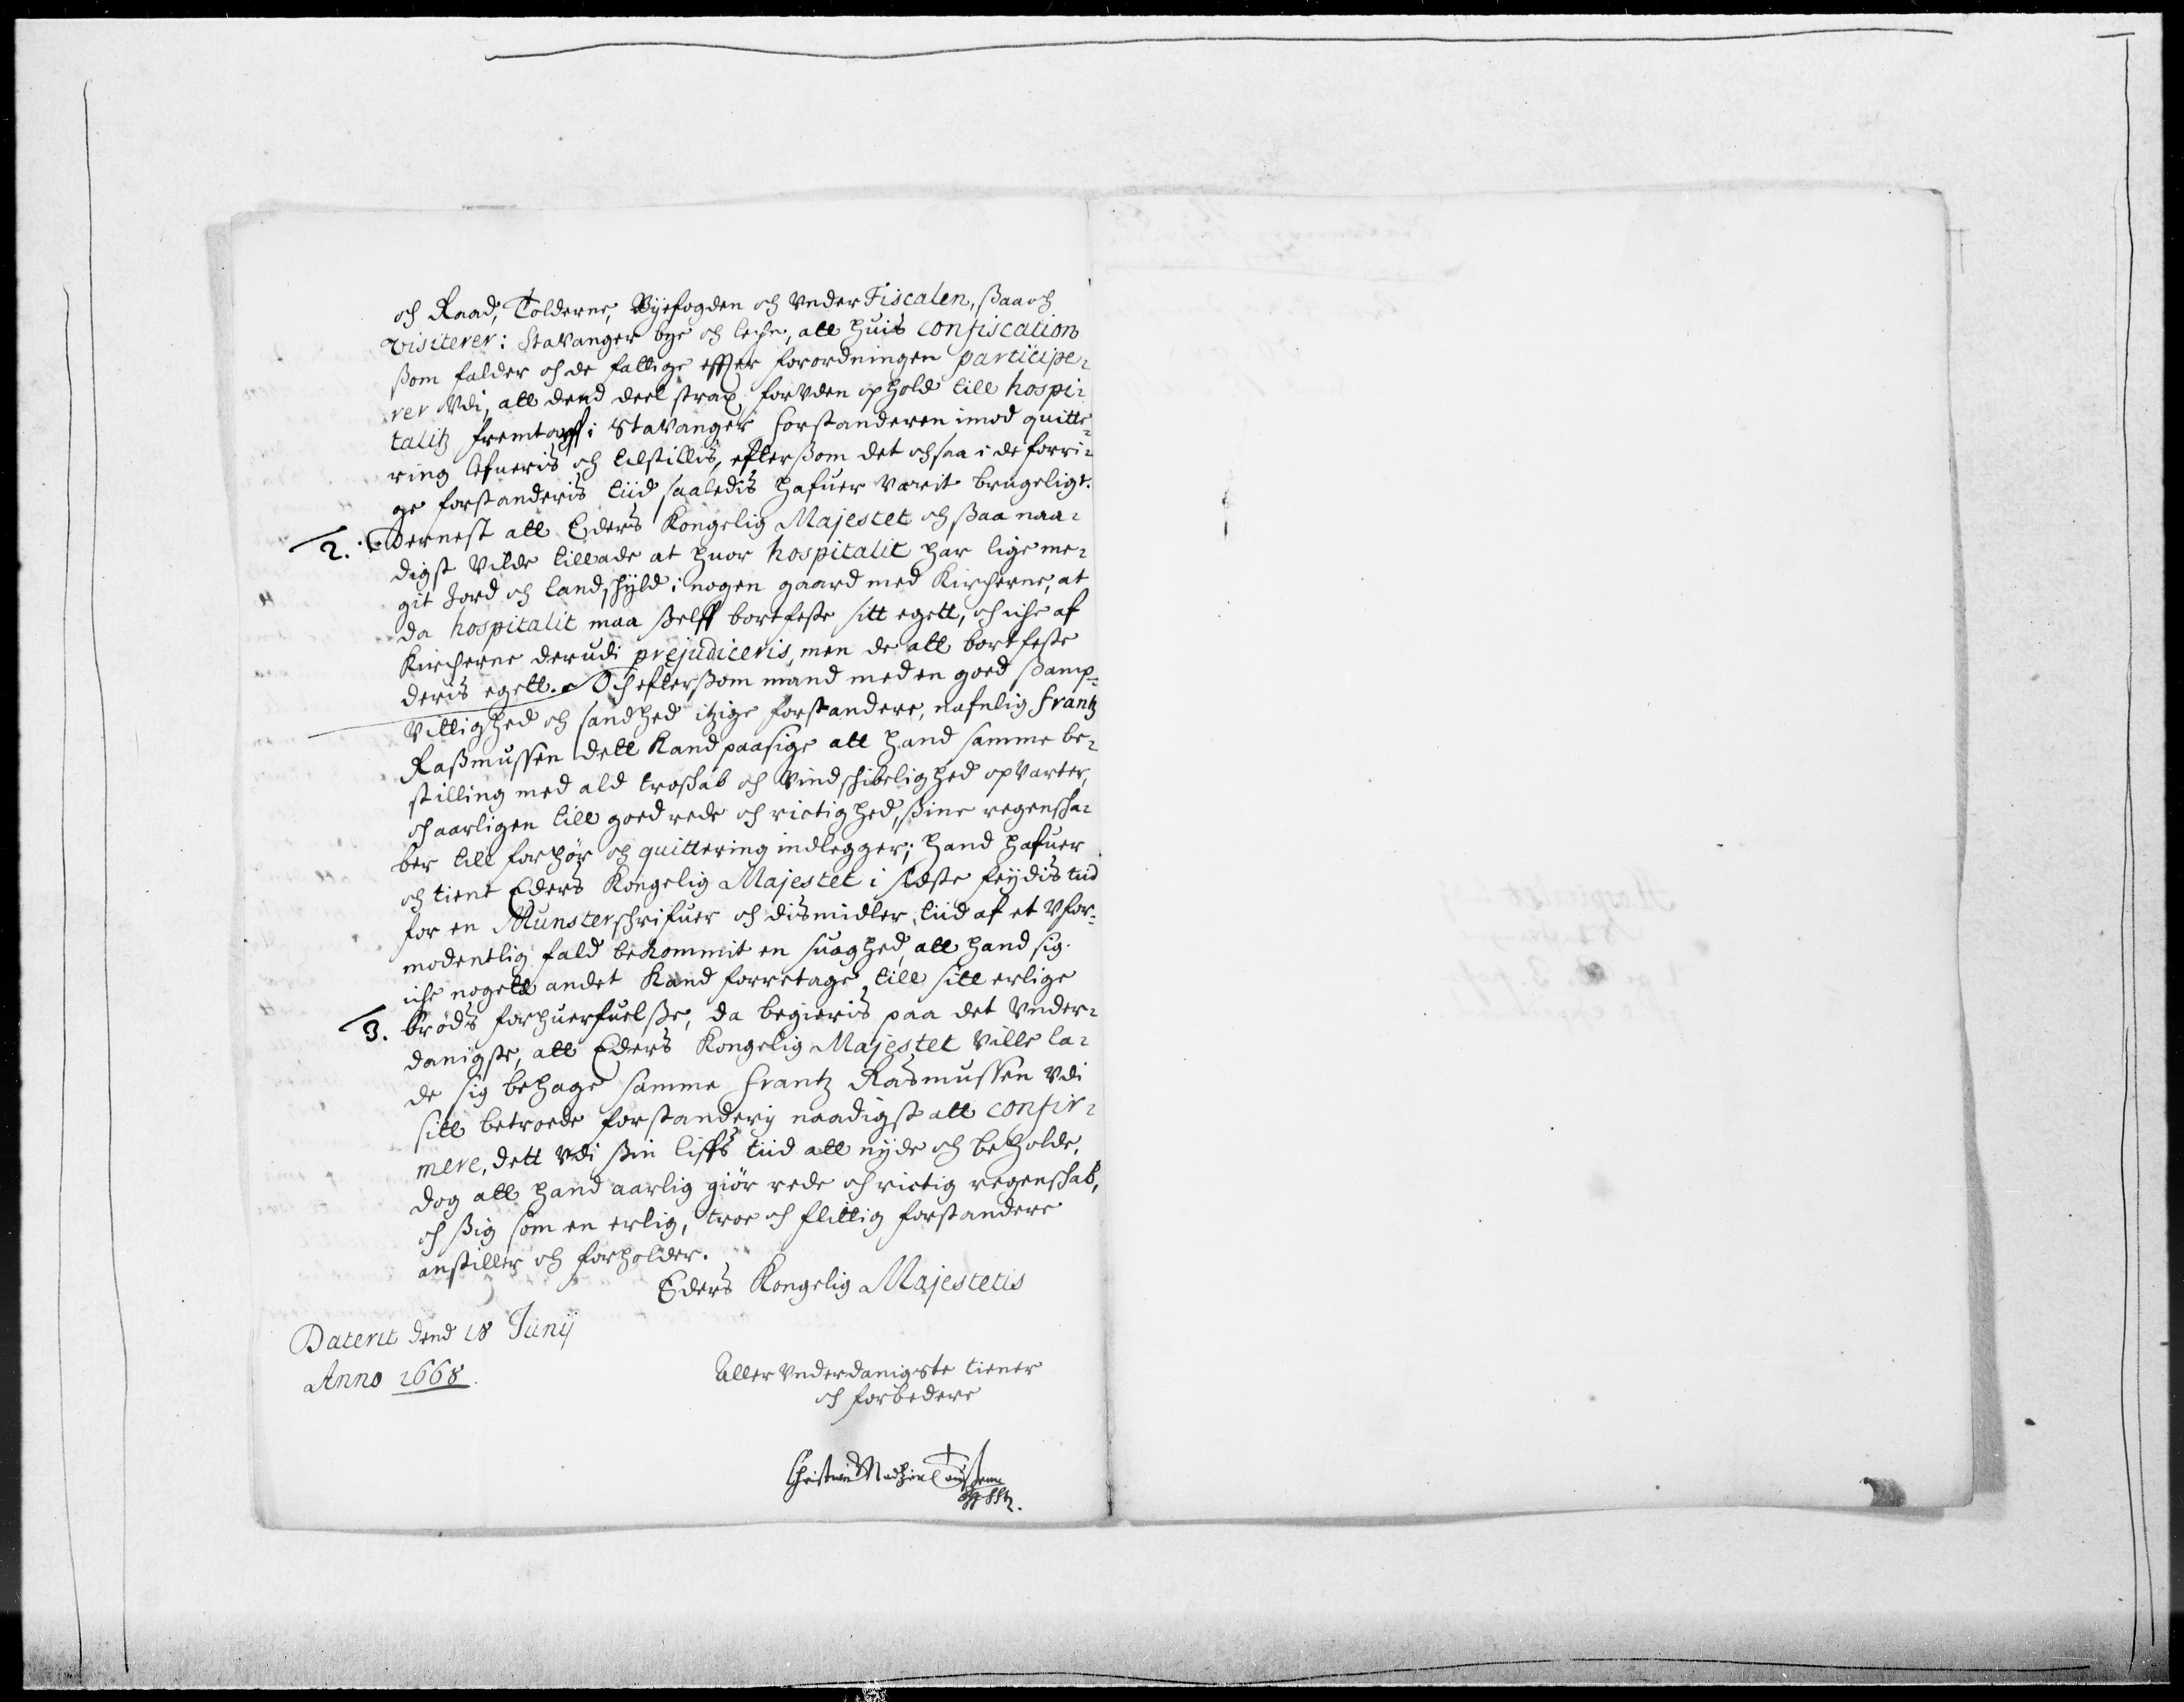 och Raad, Tolderne, Byefogden och Under Fiscalen, ßaa och
visiterer i Stavanger bye och lehn, att huis confiscation
ßom falder och de fattige effter forordningen participe-
rer Udi, att dend deel strax foruden ophold till hospi-
talitz fremtarff i Stavanger forstanderen imod quitte-
ring lefueris och tilstillis, efterßom det ochsaa i de forri-
ge forstanderis tiid saaledis hafuer varit brugeligt.
2. Dernest att Eders Kongelig Majestet och ßaa naa-
digst vilde tillade at huor hospitalit har lige me-
git Jord och landschyld i nogen gaard med Kircherne, at
da hospitalit maa ßelff bortfeste sitt egett, och iche af
Kircherne derudi prejudiceris, men de att bortfeste
deris egett. Och efterßom mand med en goed ßamp-
Vittighed och sandhed itzige forstandere, nafnlig Frantz
Raßmussen dett kand paasige att hand samme be-
stilling med ald troschab och vindschibelighed opvarter,
och aarligen till goed rede och rictighed, ßine regenscha-
ber till forhør och quittering indlegger; hand hafuer
och tient Eders Kongelig Majestet i sidste feijdis tiid
for en Munsterschrifuer och dismidler tiid af et Ufor-
modentlig fald bekommit en suaghed, att hand sig
iche nogett andet kand forretage till sitt erlige
3. brøds forhuerfuelße, da begieris paa det Under-
danigste, att Eders Kongelig Majestet ville la-
de sig behage samme Frantz Rasmussen Udi
sitt betroede forstanderij naadigst att confir-
mere, dett Udi ßin liffs tiid att nyde och beholde,
dog att hand aarlig giør rede och rictig regenschab,
och ßig som en erlig, troe och flittig forstandere
anstiller och forholder.
Eders Kongelig Majestetis
Daterit dend 18 Junij
Anno 1668.
Aller Underdanigste tiener
och forbedere